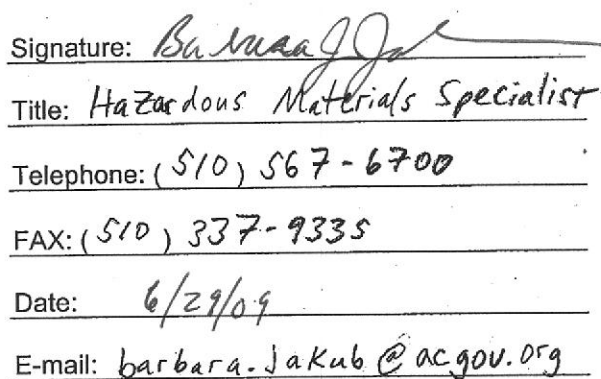 Signature: Barbara J Jakub
Title: Hazardous Materials Specialist
Telephone: (510) 567-6700
FAX: (510) 337-9335
Date: 6/29/09
E-mail: barbara.jakub@acgov.org